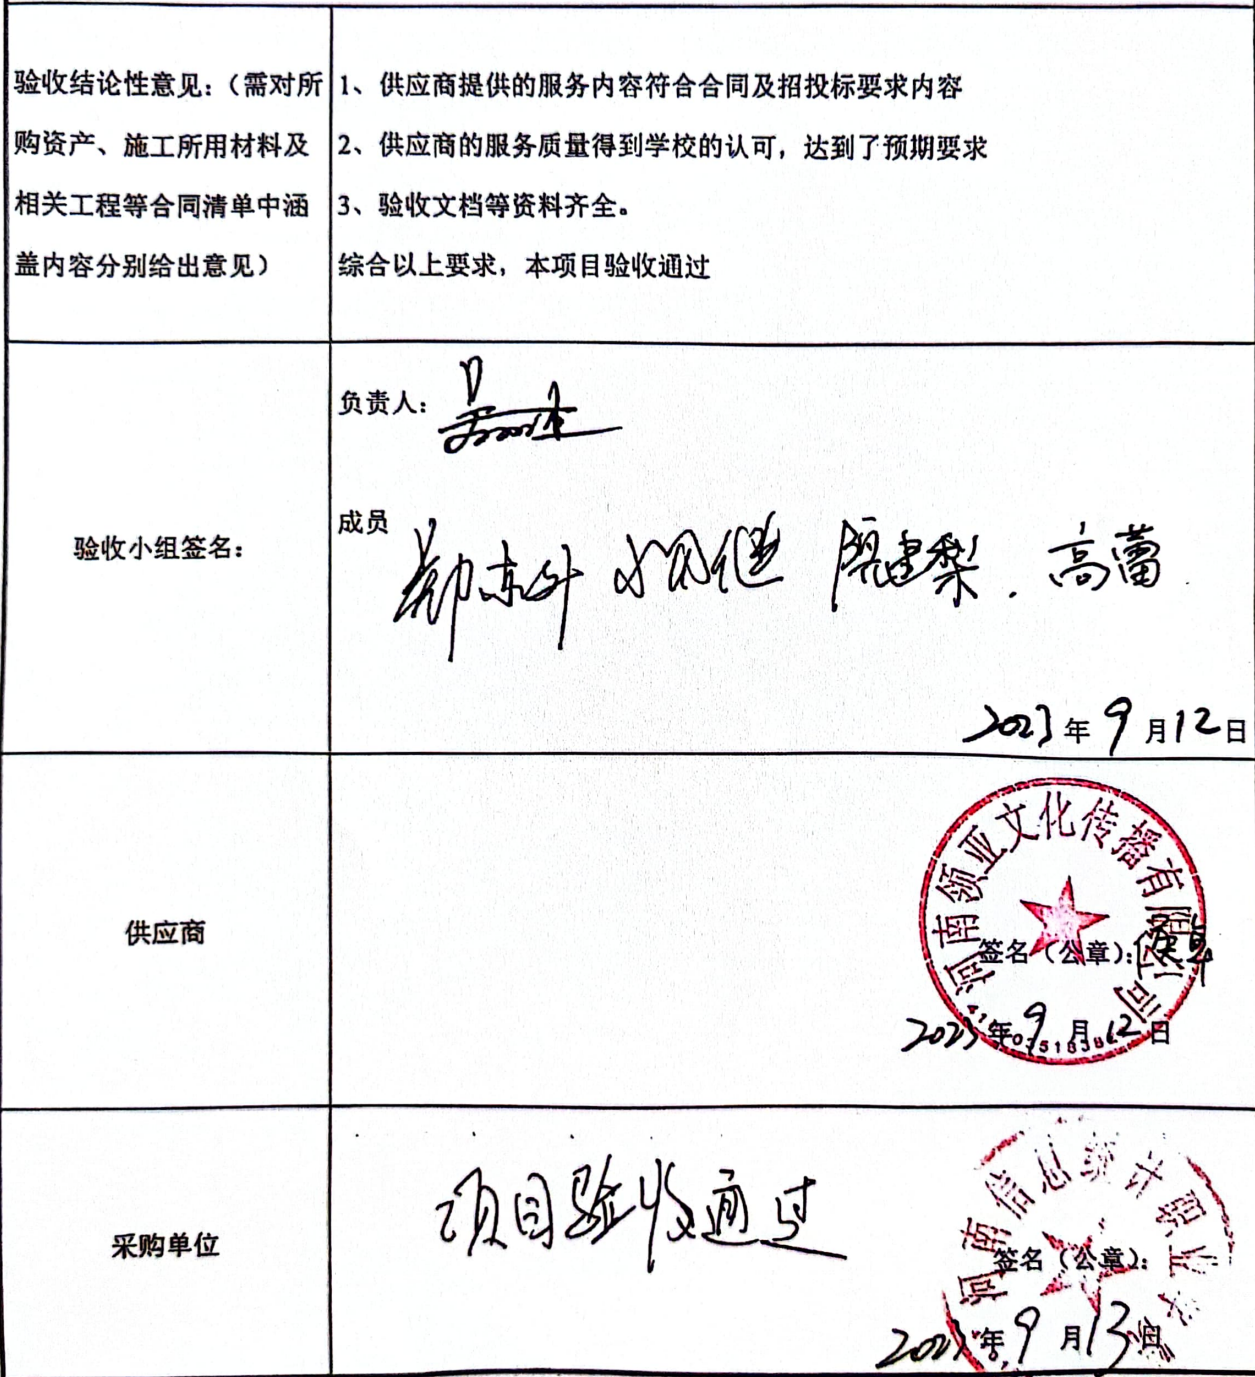 验收结论性意见：（需对所
购资产、施工所用材料及
相关工程等合同清单中涵
盖内容分别给出意见）
1、供应商提供的服务内容符合合同及招投标要求内容
2、供应商的服务质量得到学校的认可，达到了预期要求
3、验收文档等资料齐全。
综合以上要求，本项目验收通过
验收小组签名：
负责人：
成员
高蕾
2023年9月12日
供应商
河南领亚文化传播有限公司
签名（公章）：
2023年9月12日
采购单位
项目验收通过
河南信息统计职业学
签名（公章）：
2023年9月13日